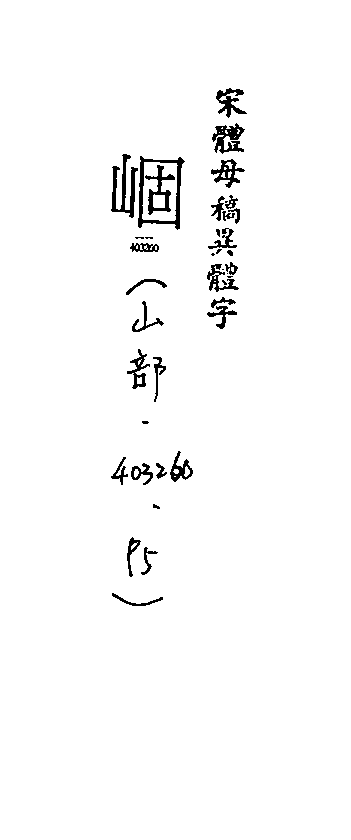 宋體母稿異體字
崓
403260
(山部·403260·P5)